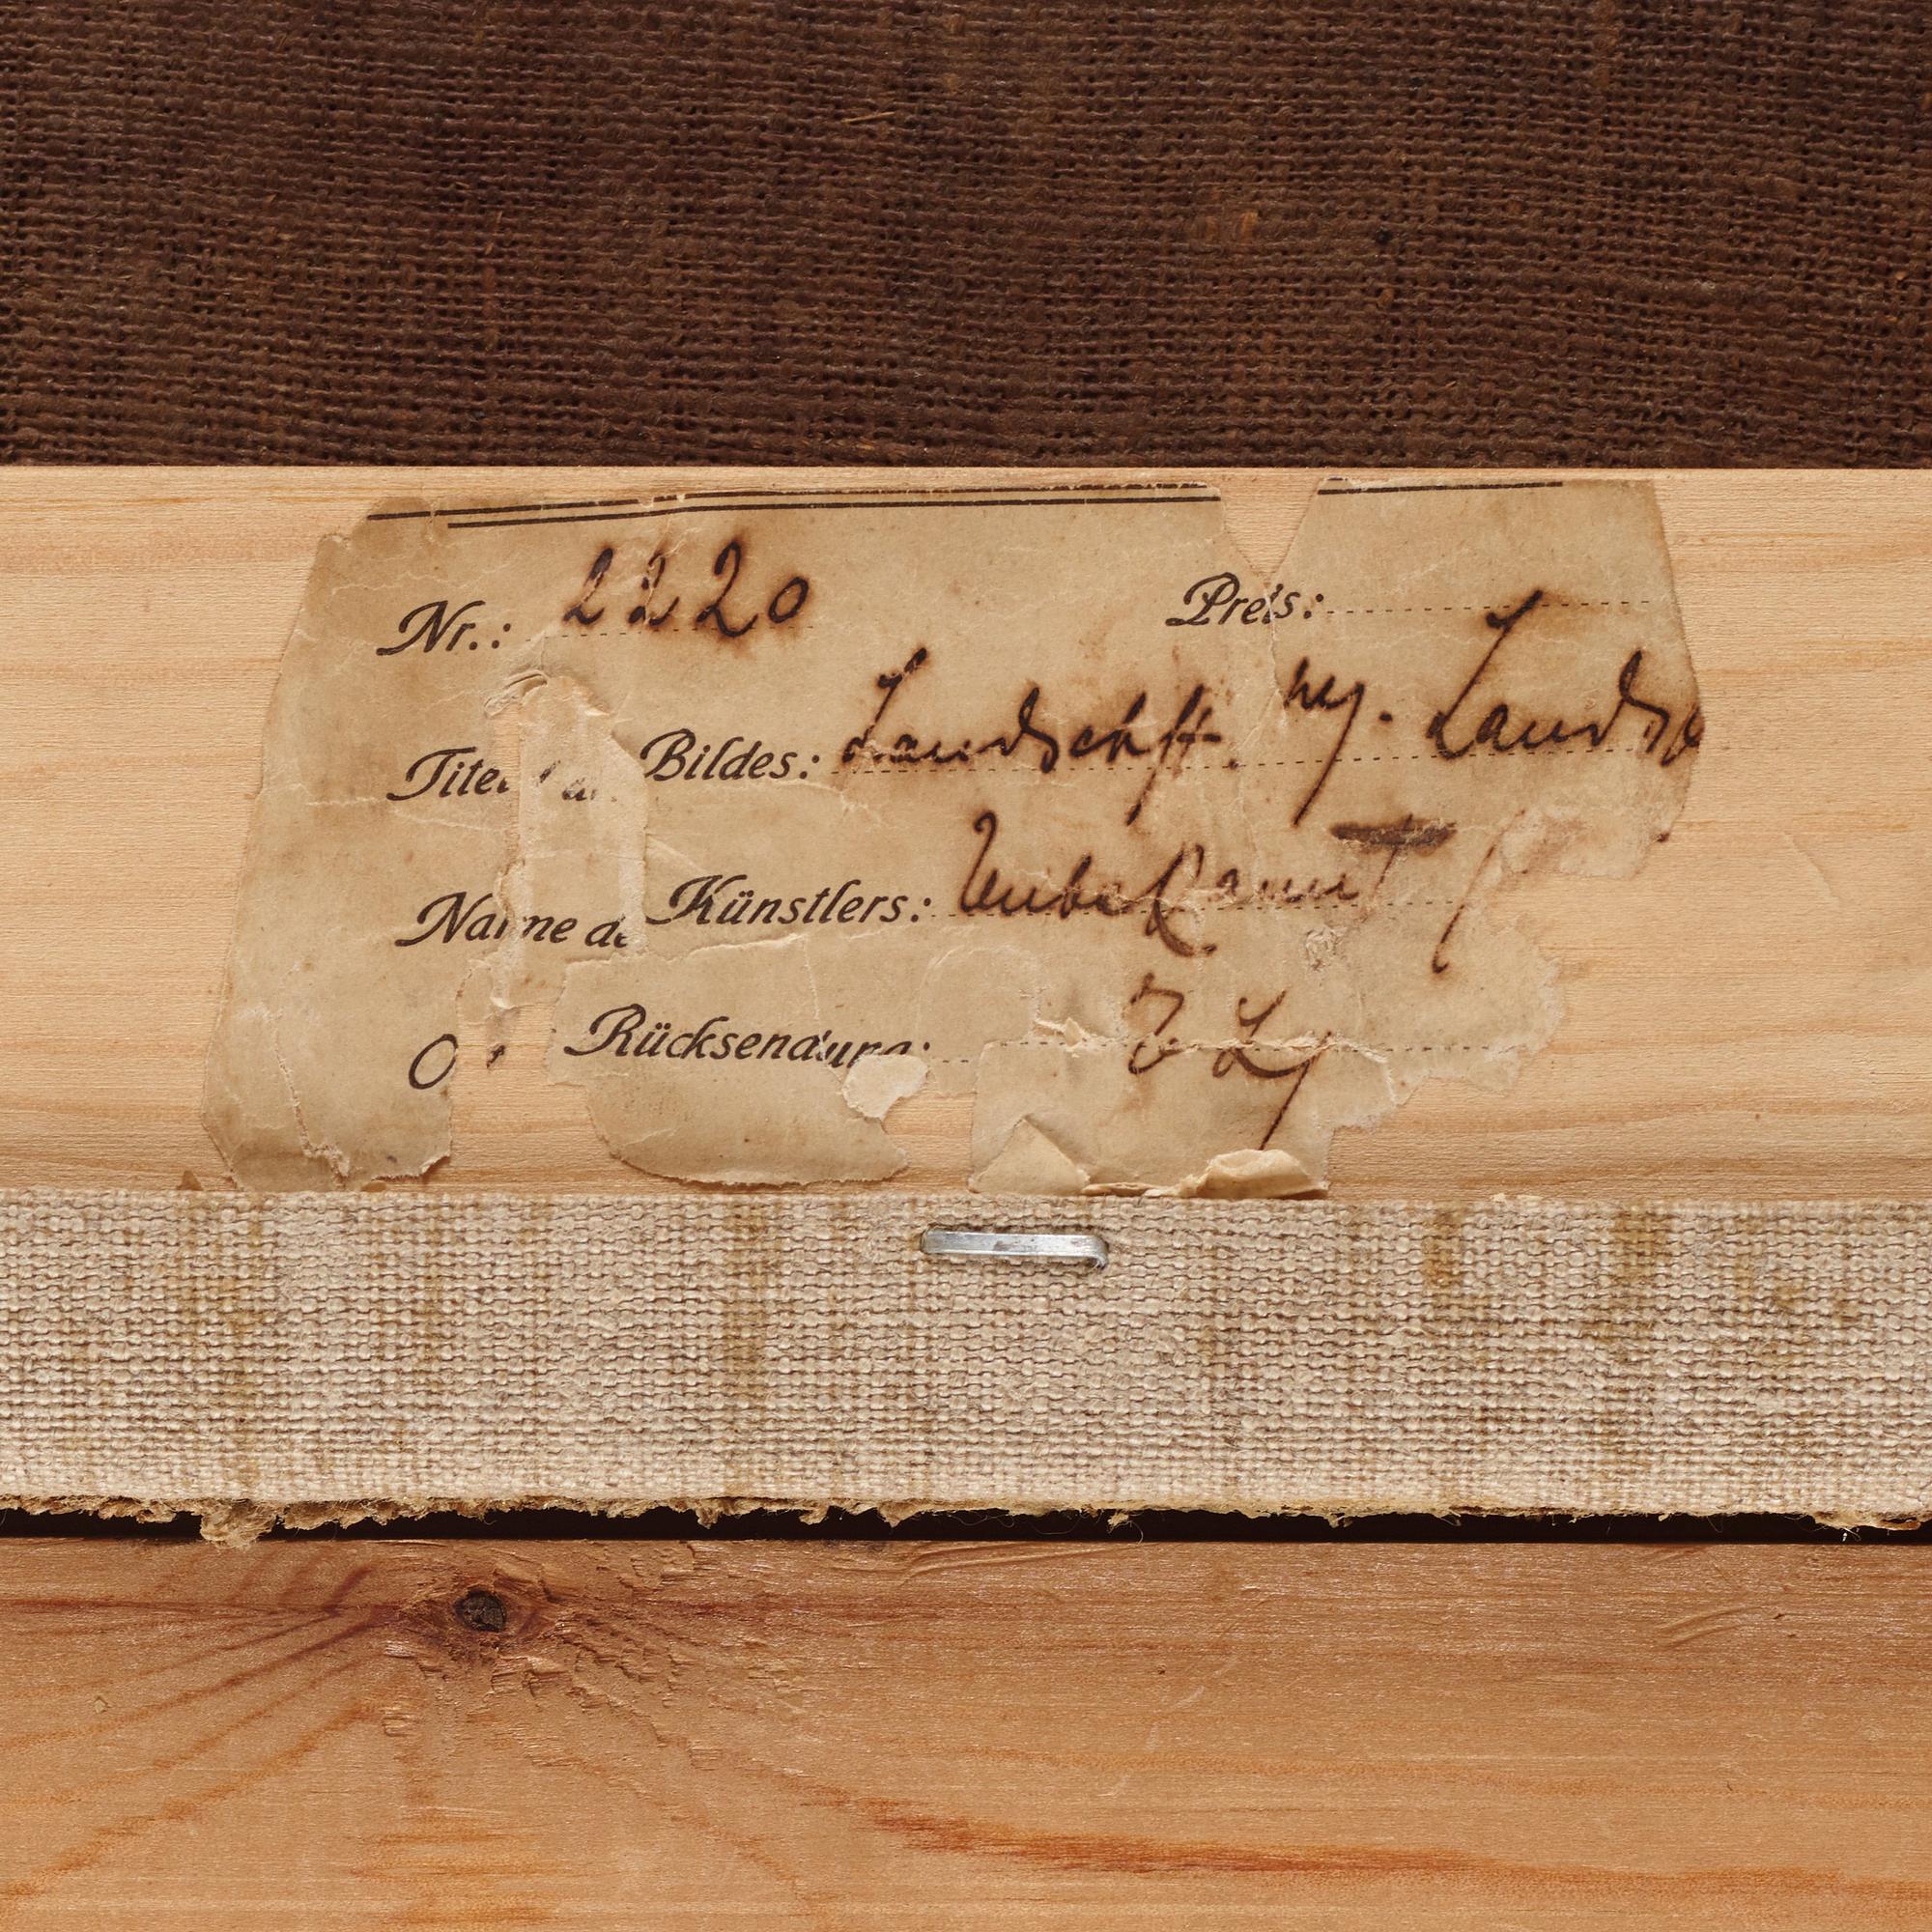 Nr.: 2220 Preis:
Titel des Bildes: Landschft. hg. Landsc
Name de Künstlers: Unbekannt
O Rücksendung: